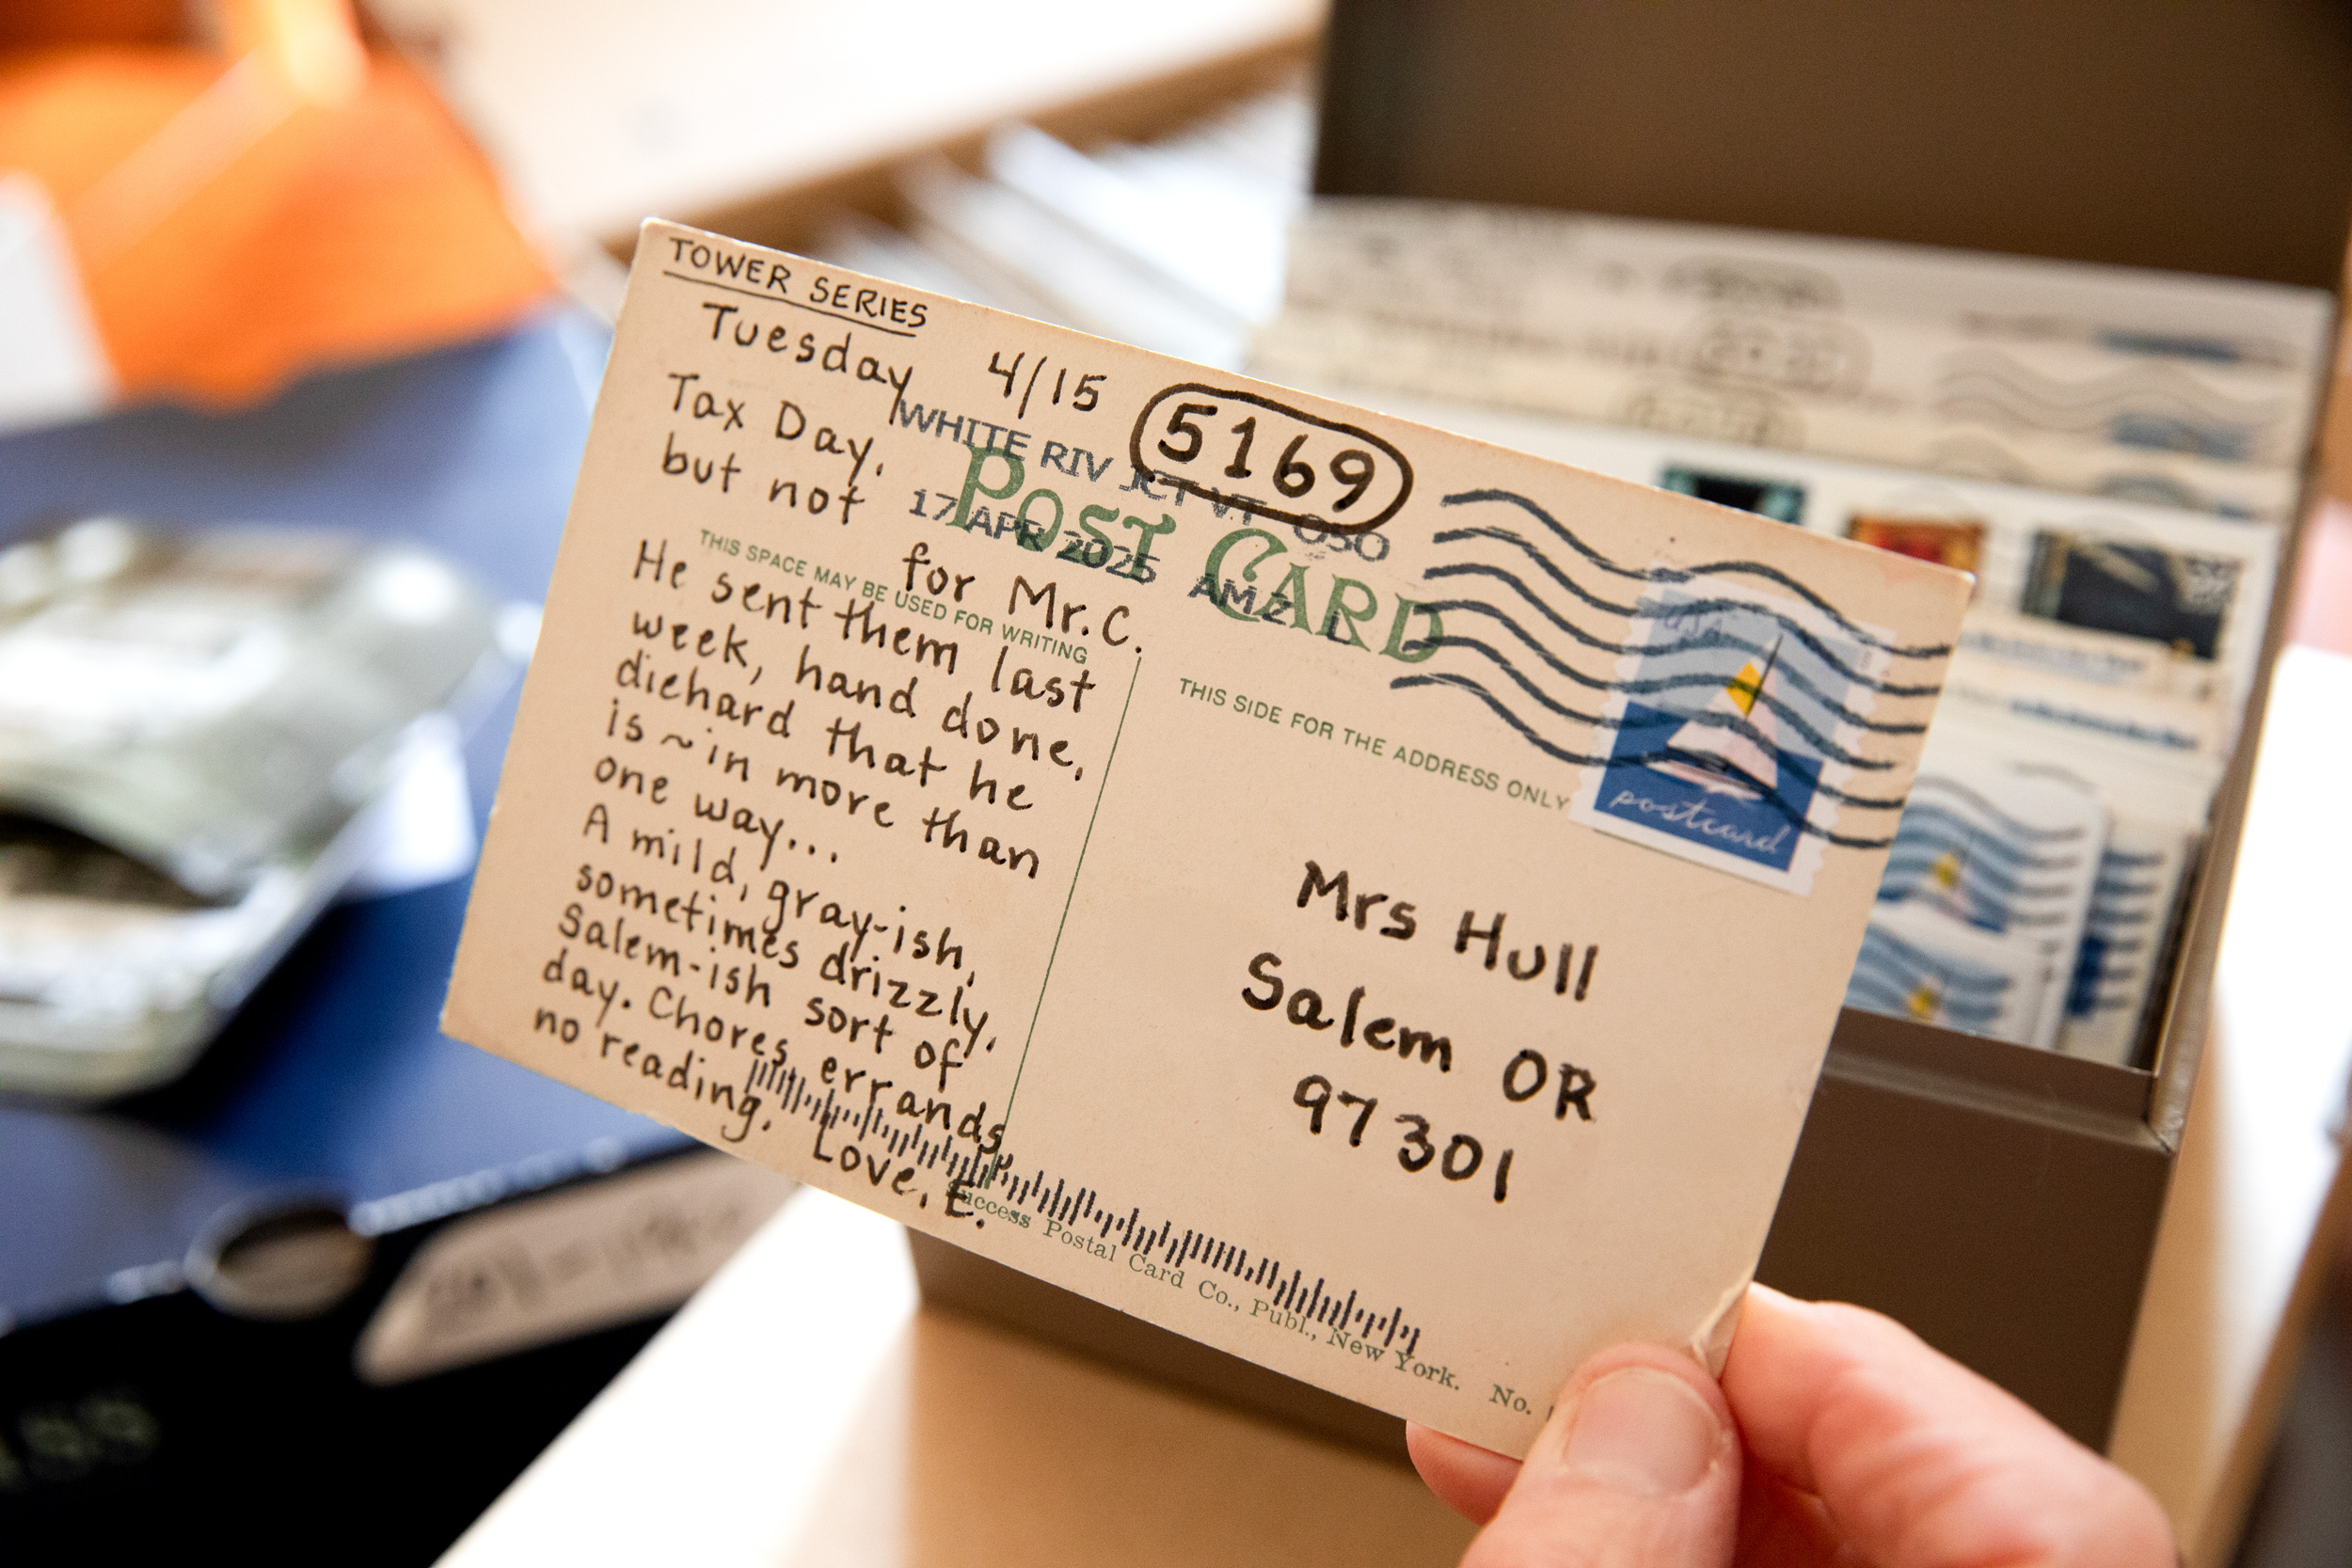 TOWER SERIES
Tuesday 4/15
5169
Tax Day,
but not
for Mr. C.
He sent them last
week, hand done,
diehard that he
is ~ in more than
one way...
A mild, gray-ish,
sometimes drizzly,
Salem-ish sort of
day. Chores, errands,
no reading.
Love, E.
WHITE RIV JCT VT 050
17 APR 2025 AM 2 L
POST CARD
THIS SPACE MAY BE USED FOR WRITING
THIS SIDE FOR THE ADDRESS ONLY
USA
postcard
Mrs Hull
Salem OR
97301
Success Postal Card Co., Publ., New York. No.